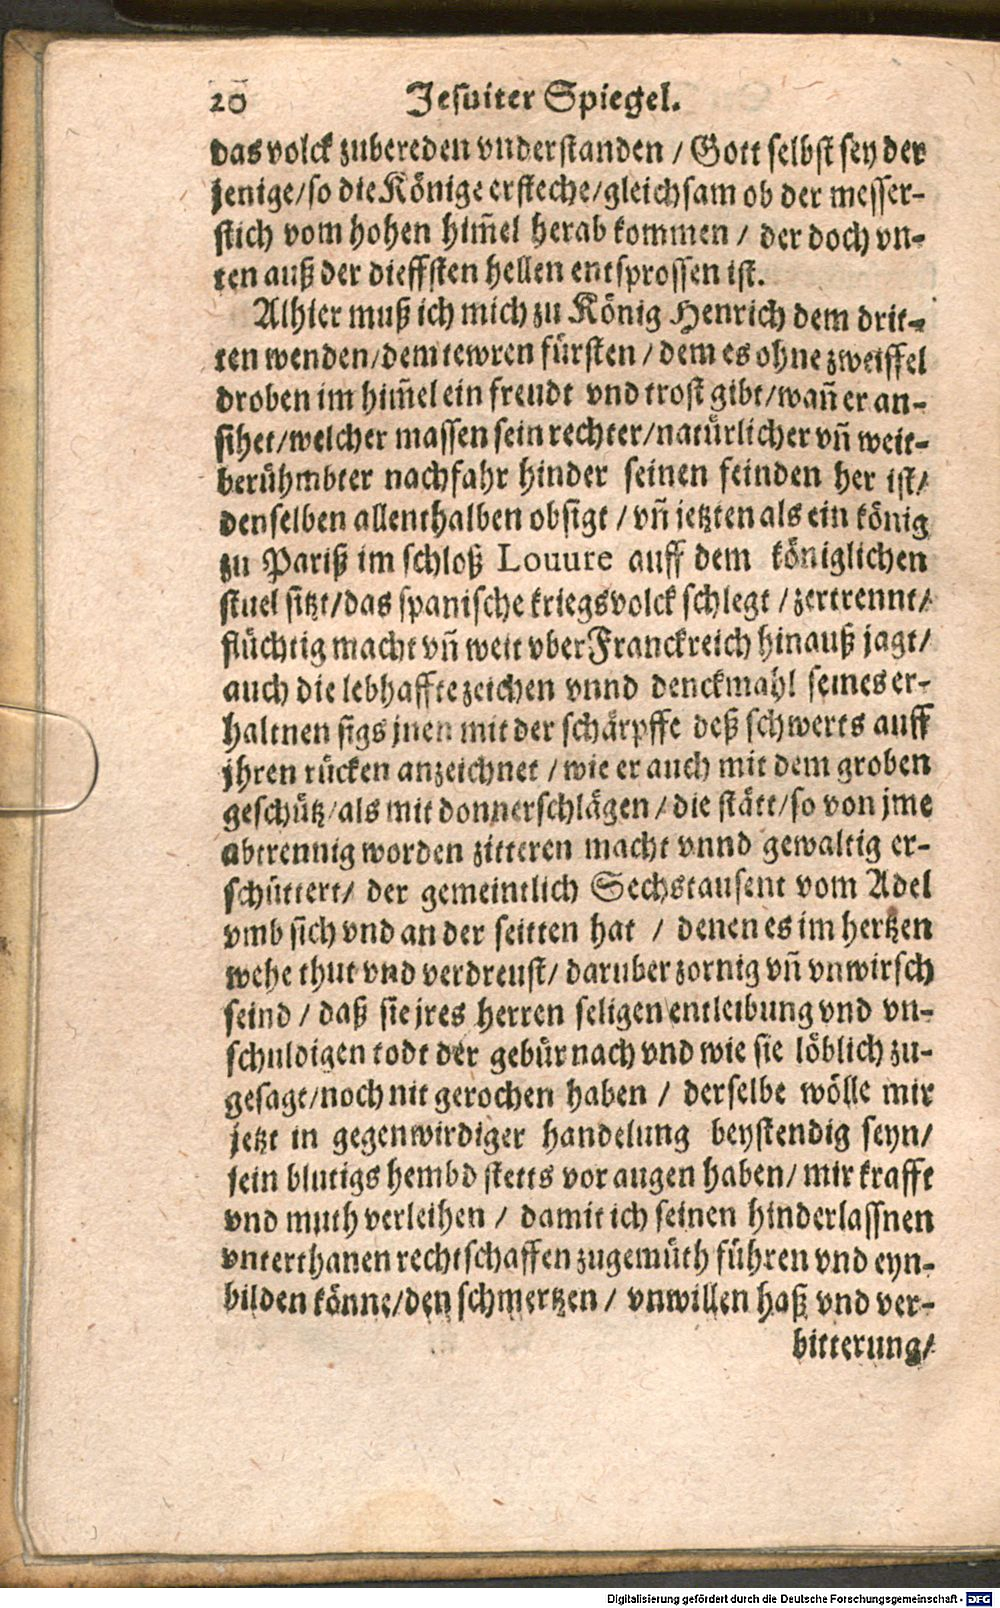 20 Jesuiter Spiegel.
das volck zubereden vnderstanden / Gott selbst sey der
jenige/so die Könige ersteche/gleichsam ob der messer-
stich vom hohen him̃el herab kommen / der doch vn-
ten auß der dieffsten hellen entsprossen ist.
Alhier muß ich mich zu König Henrich dem drit-
ten wenden/dem tewren fürsten / dem es ohne zweiffel
droben im him̃el ein freudt vnd trost gibt/wañ er an-
sihet/welcher massen sein rechter/natürlicher vñ weit-
berühmbter nachfahr hinder seinen feinden her ist/
denselben allenthalben obsigt / vñ jetzten als ein könig
zu Pariß im schloß Louure auff dem königlichen
stuel sitzt/das spanische kriegsvolck schlegt / zertrennt/
flüchtig macht vñ weit vber Franckreich hinauß jagt/
auch die lebhaffte zeichen vnnd denckmahl seines er-
haltnen sigs jnen mit der schärpffe deß schwerts auff
jhren rücken anzeichnet / wie er auch mit dem groben
geschütz/als mit donnerschlägen / die stätt/so von jme
abtrennig worden zitteren macht vnnd gewaltig er-
schüttert/ der gemeintlich Sechstausent vom Adel
vmb sich vnd an der seitten hat / denen es im hertzen
wehe thut vnd verdreust/ daruber zornig vñ vnwirsch
seind / daß sie jres herren seligen entleibung vnd vn-
schuldigen todt der gebür nach vnd wie sie löblich zu-
gesagt/noch nit gerochen haben / derselbe wölle mir
jetzt in gegenwirdiger handelung beystendig seyn/
sein blutigs hembd stetts vor augen haben/ mir krafft
vnd muth verleihen / damit ich seinen hinderlassnen
vnterthanen rechtschaffen zugemüth führen vnd eyn-
bilden könne/den schmertzen / vnwillen haß vnd ver-
bitterung/
Digitalisierung gefördert durch die Deutsche Forschungsgemeinschaft - DFG